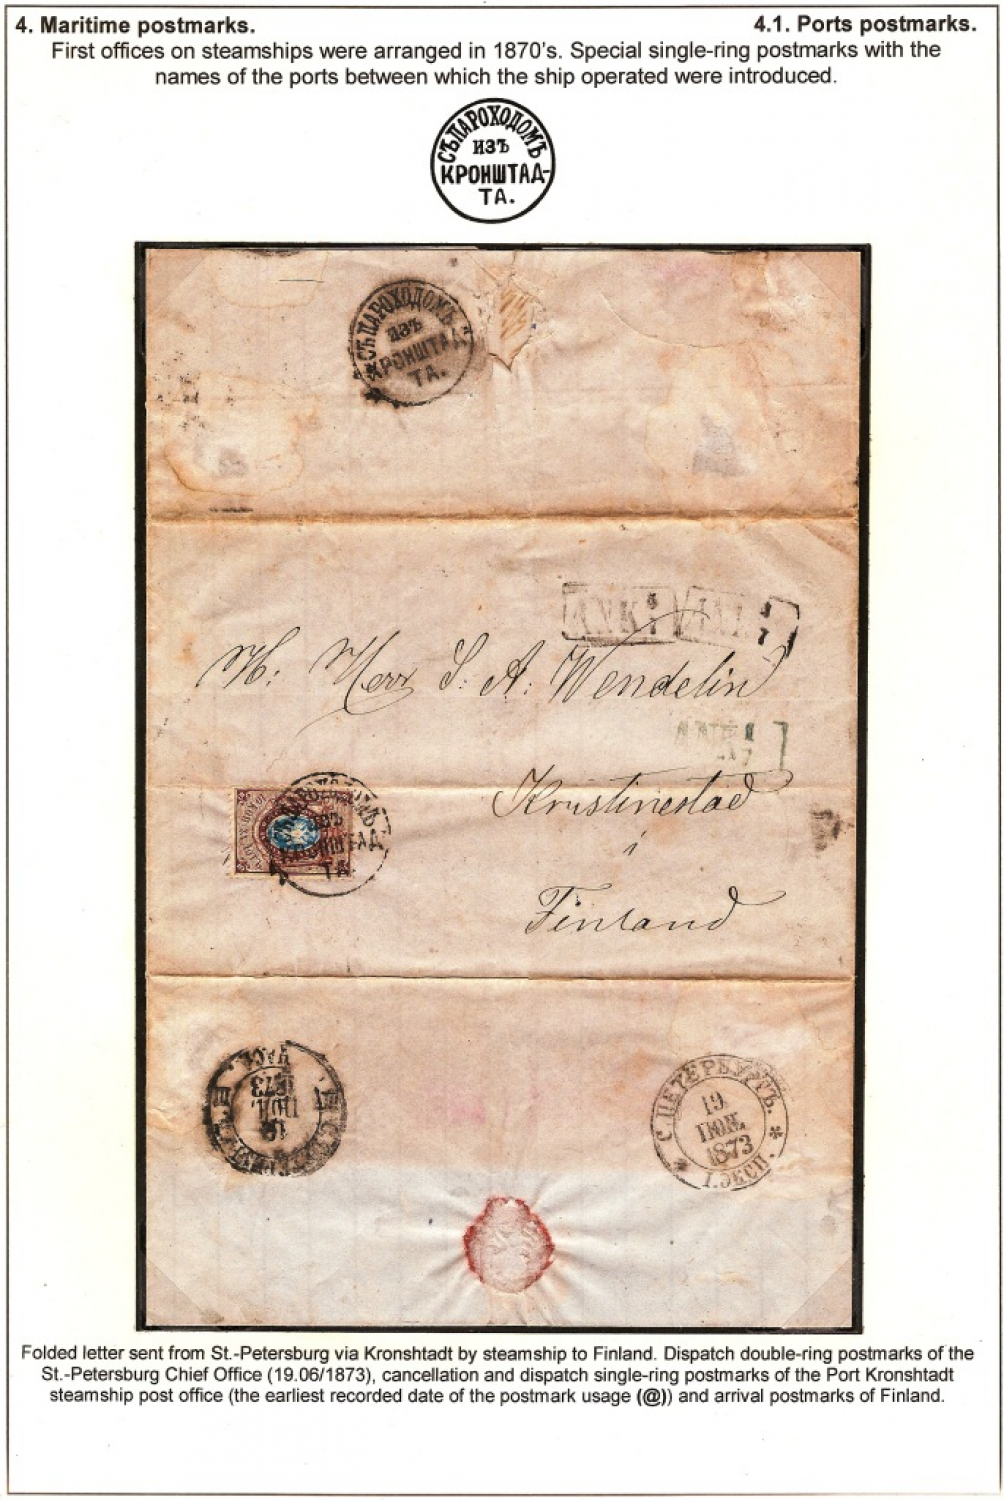 4. Maritime postmarks. 4.1. Ports postmarks.
First offices on steamships were arranged in 1870's. Special single-ring postmarks with the
names of the ports between which the ship operated were introduced.
СЪ ПАРОХОДОМЪ
ИЗЪ
КРОНШТАД-
ТА.
СЪ ПАРОХОДОМЪ
ИЗЪ
КРОНШТАД
ТА.
ANK 
H: Herr S. A: Wendelin
Kristinestad
i
Finland
ПАРОХОДОМЪ
ИЗЪ
КРОНШТАД
ТА
ЧАСА.
1873
ІЮН.
19
С. ПЕТЕРБУРГЪ.
19
ІЮН.
1873
I. ЭКСП.
Folded letter sent from St.-Petersburg via Kronshtadt by steamship to Finland. Dispatch double-ring postmarks of the
St.-Petersburg Chief Office (19.06/1873), cancellation and dispatch single-ring postmarks of the Port Kronshtadt
steamship post office (the earliest recorded date of the postmark usage (@)) and arrival postmarks of Finland.